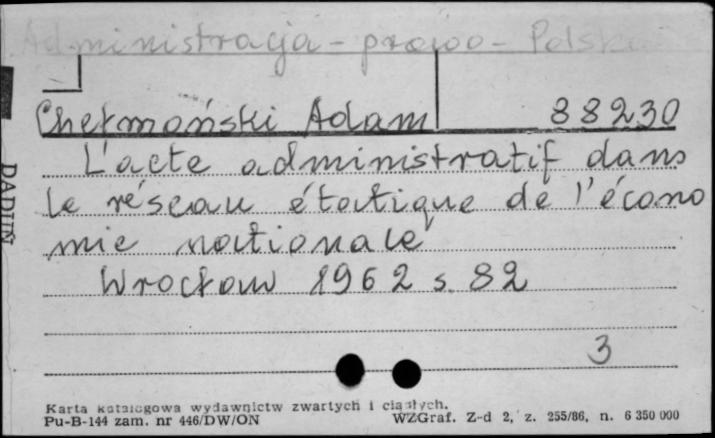 Administracja - prawo - Polska
Chełmoński Adam 88230
L'acte administratif dans
le réseau étatique de l'écono
mie nationale
Wrocław 1962 s. 82
3
DADUŃ
Karta katalogowa wydawnictw zwartych i ciągłych.
Pu-B-144 zam. nr 446/DW/ON WZGraf. Z-d 2, z. 255/86, n. 6 350 000